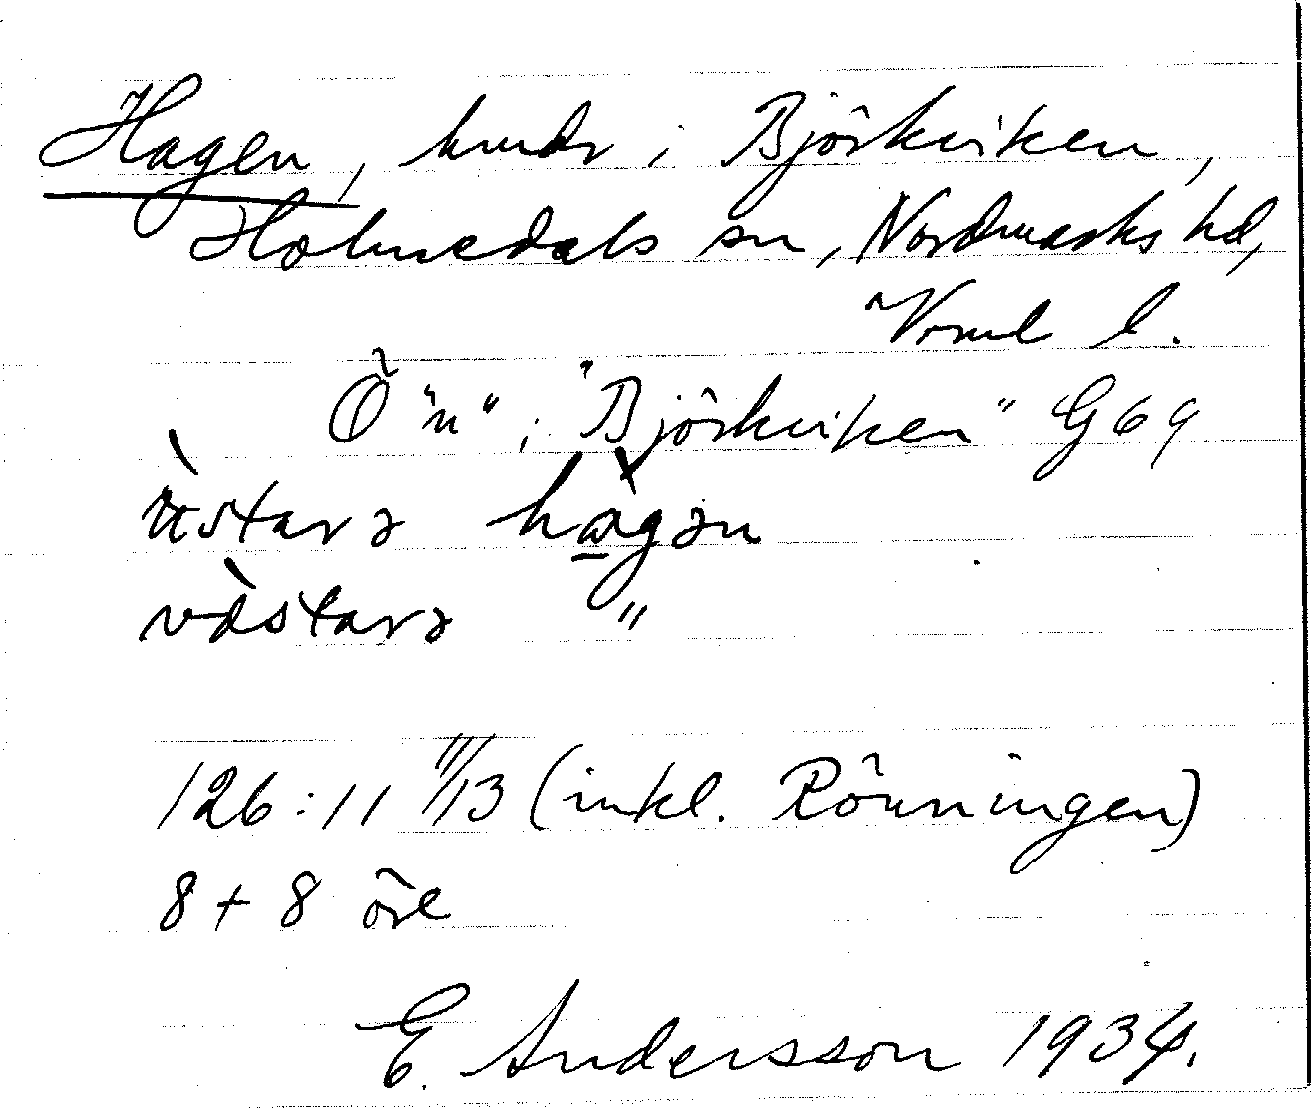 Hagen, hmdr i Björkviken,
Holmedals sn, Nordmarks hd,
Vrml l.
Ö "n" i "Björkviken" G 69
ùstarə hàgən
vàstarə "
126:11 11/13 (inkl. Rönningen)
8 + 8 öre
E. Andersson 1934.